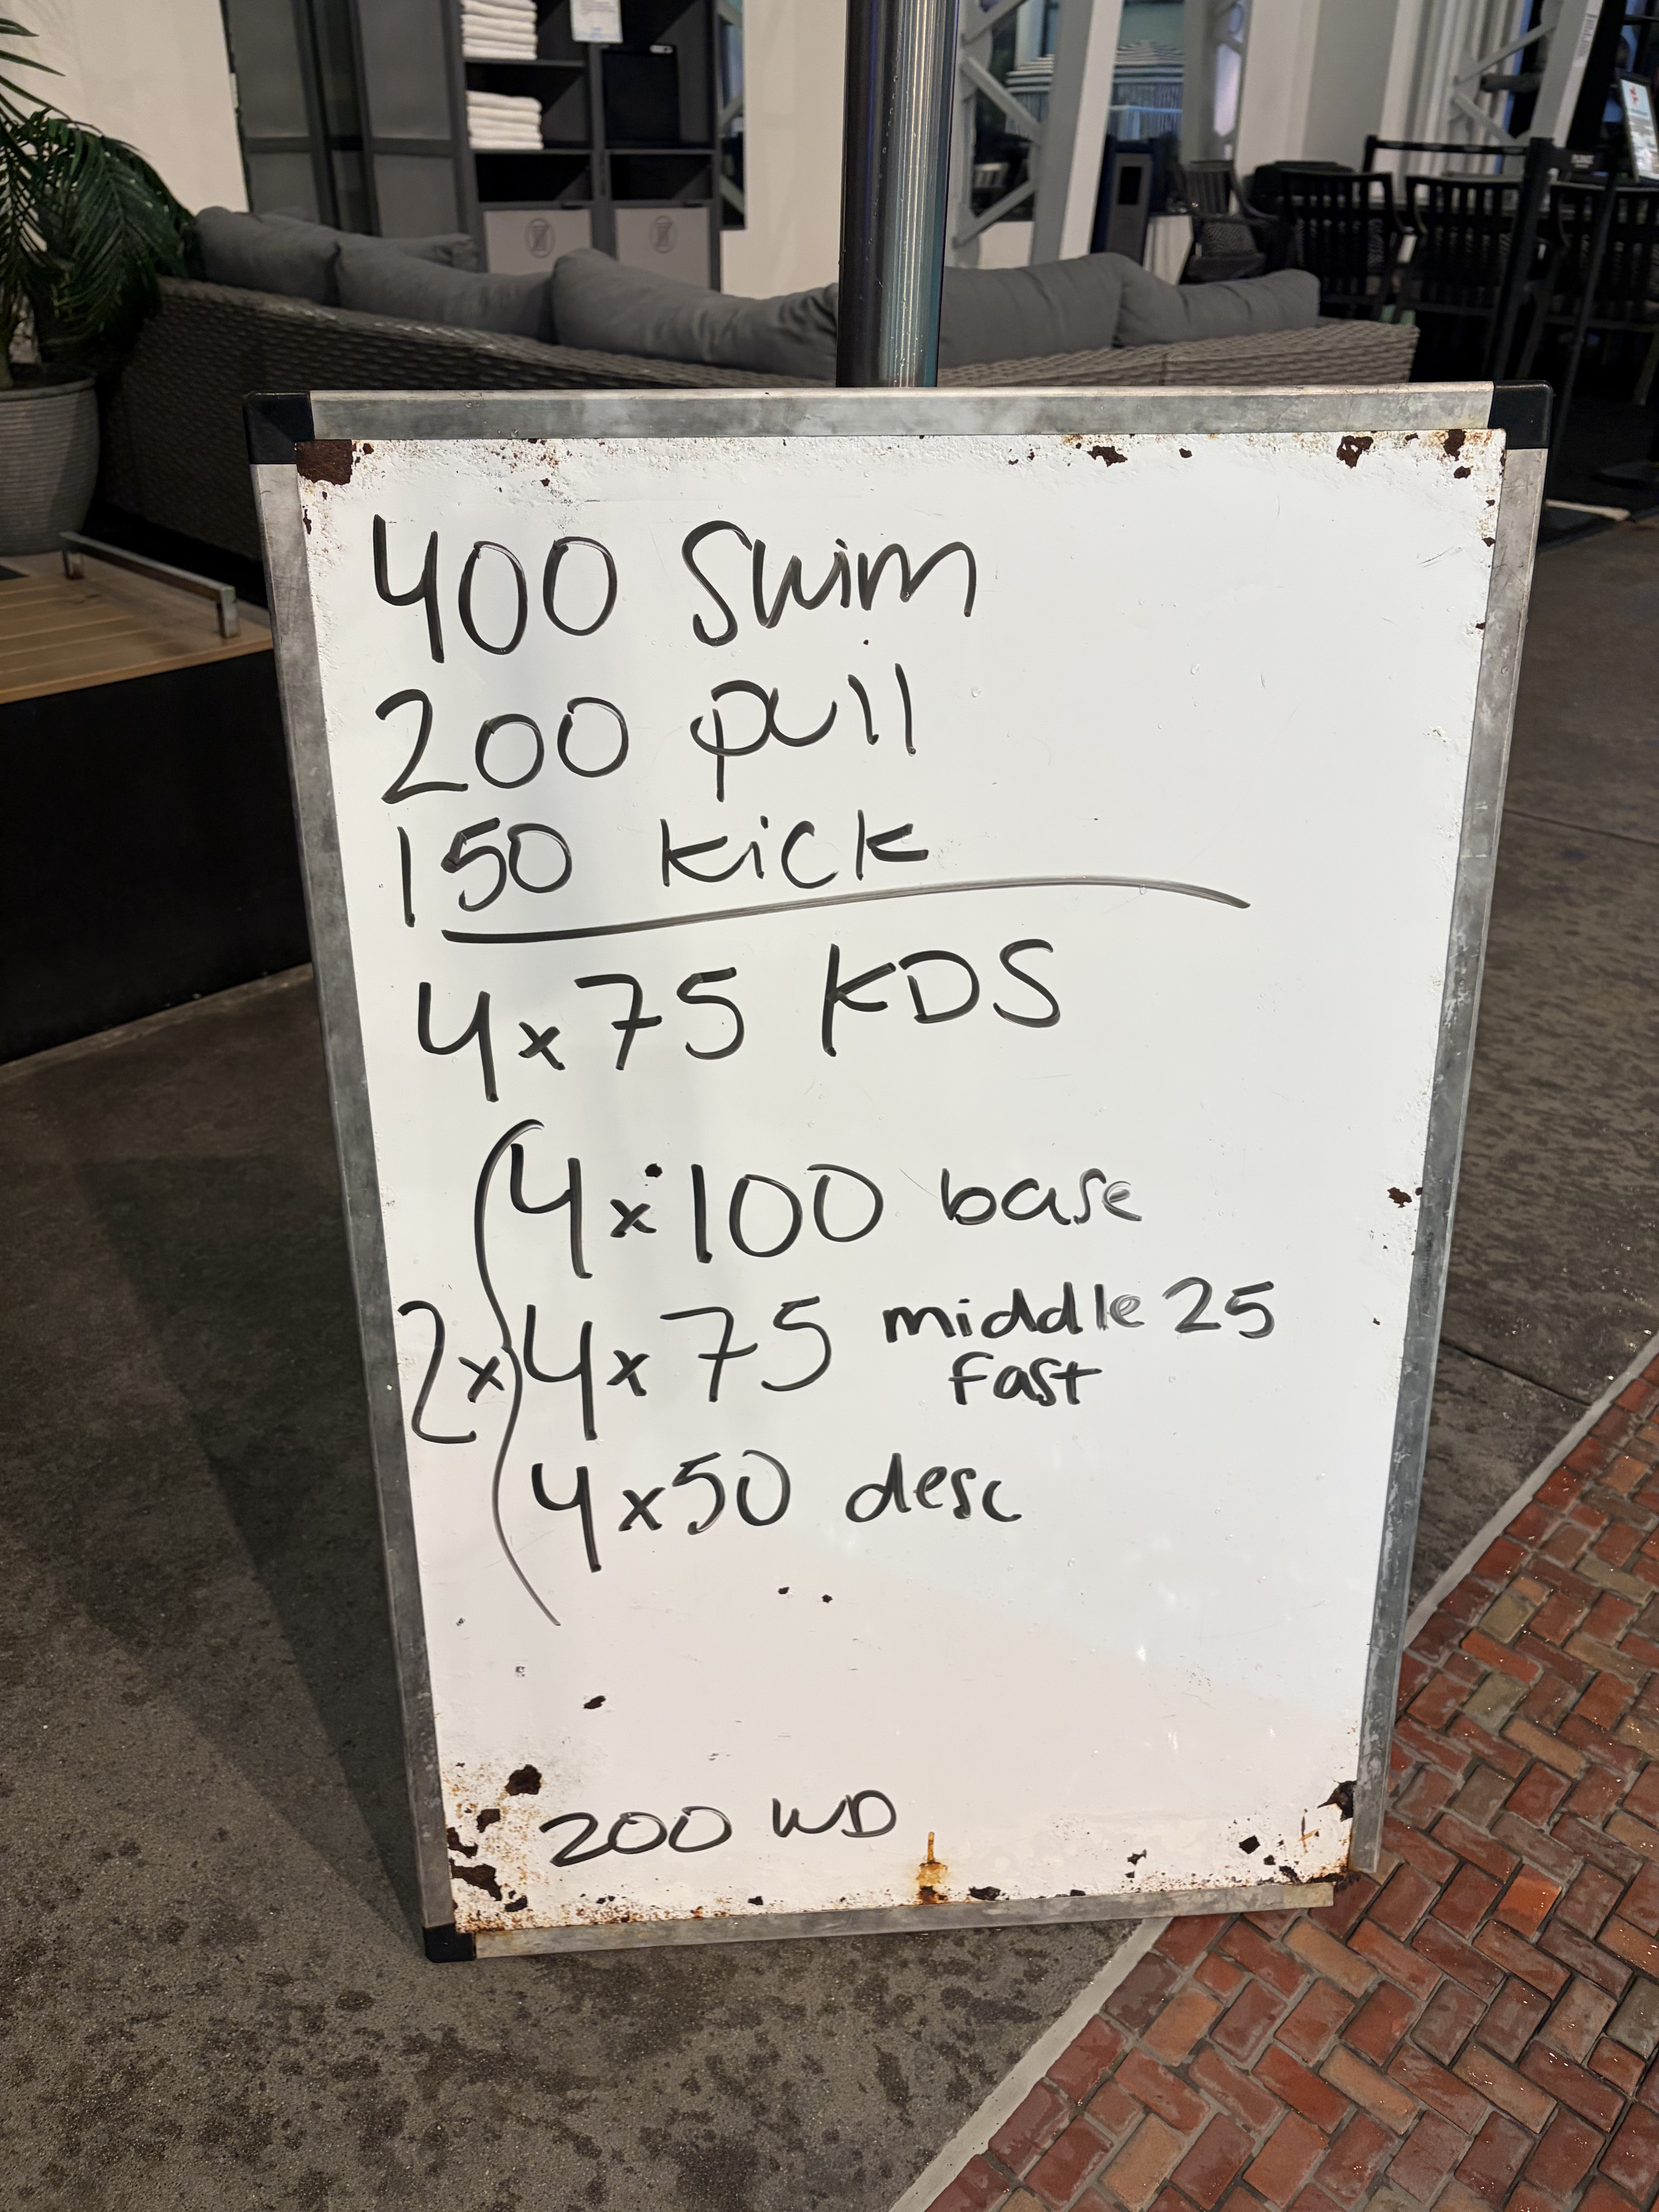 400 Swim
200 pull
150 kick
4x75 KDS
4x100 base
2x 4x75 middle 25
fast
4x50 desc
200 WD